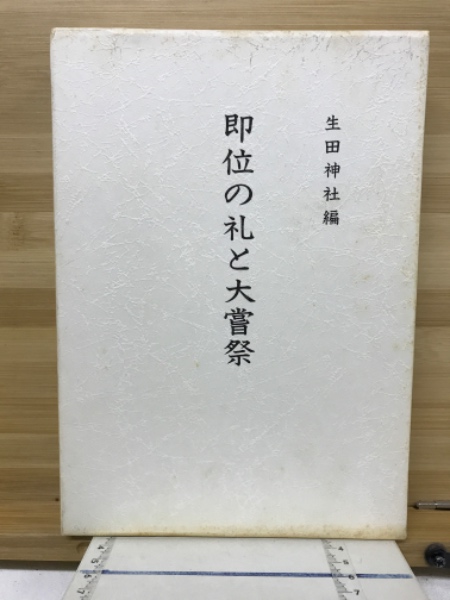 生田神社編
即位の礼と大嘗祭